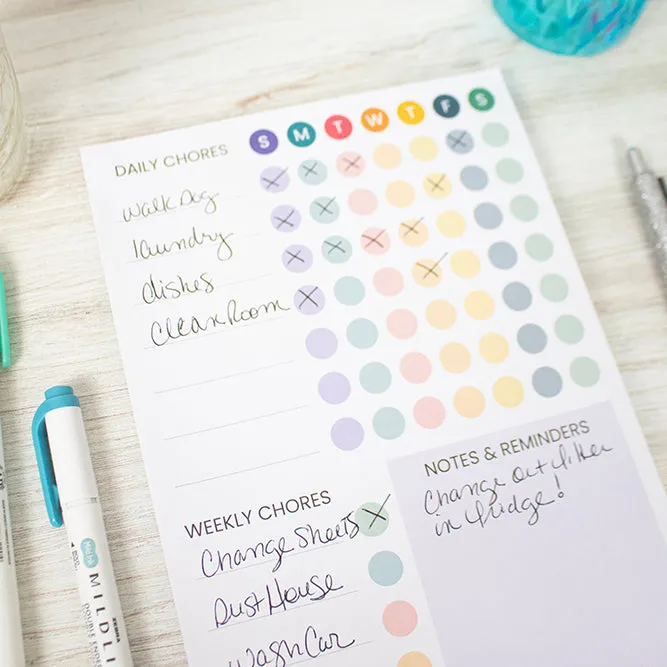 DAILY CHORES S M T W T F S
walk Dog
laundry
dishes
Clean Room
WEEKLY CHORES
Change Sheets
Dust House
Wash Car
NOTES & REMINDERS
Change out filter
in fridge!
Mild ink
MILDLI
ZEBRA
DOUBLE ENDE